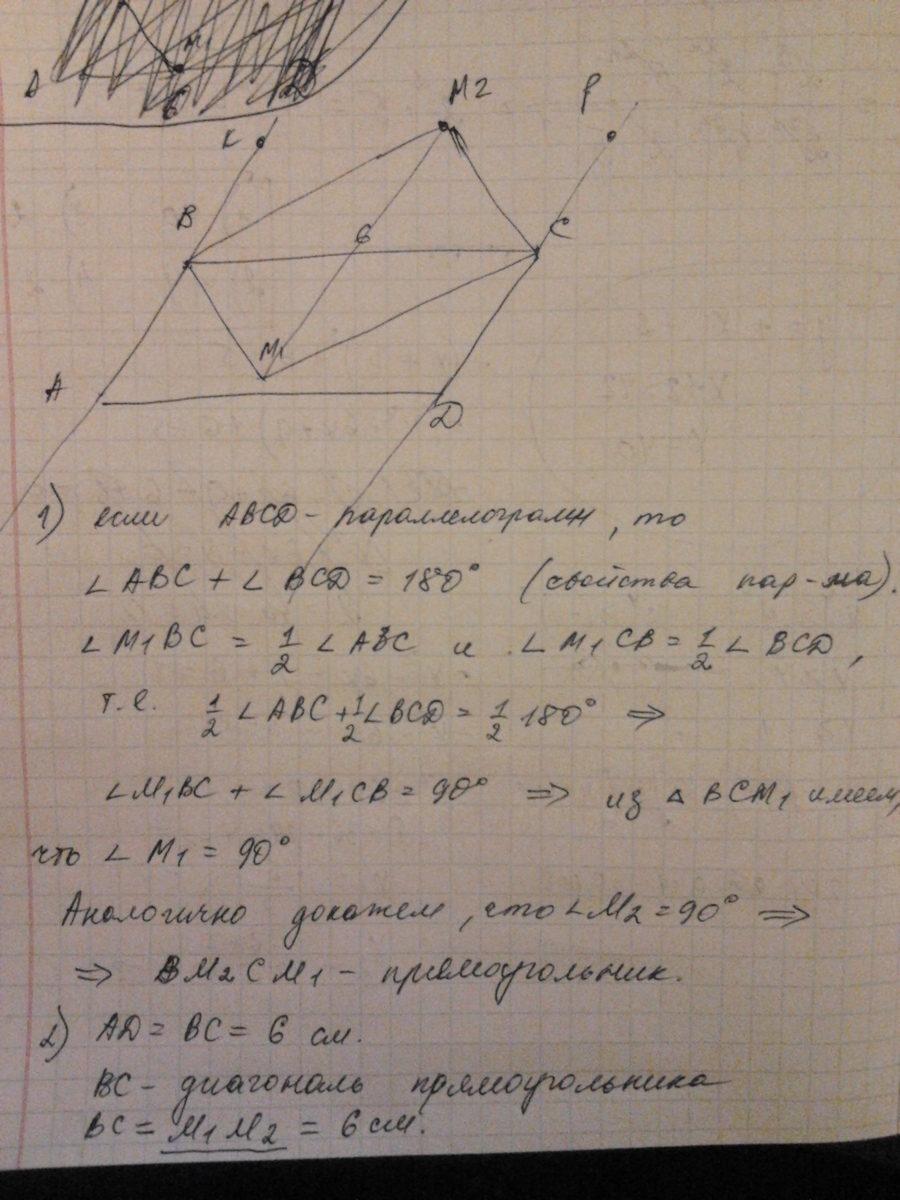 A
M2
P
K
B
6
C
M1
A
D
1) если ABCD - параллелограмм, то
∠ABC + ∠BCD = 180° (свойства пар-ма).
∠M1BC = 1/2 ∠ABC и ∠M1CB = 1/2 ∠BCD,
т.е. 1/2 ∠ABC + 1/2 ∠BCD = 1/2 180° ⇒
∠M1BC + ∠M1CB = 90° ⇒ из △ BCM1 имеем,
что ∠M1 = 90°
Аналогично докажем, что ∠M2 = 90° ⇒
⇒ BM2CM1 - прямоугольник.
2) AD = BC = 6 см.
BC - диагональ прямоугольника
BC = M1M2 = 6 см.